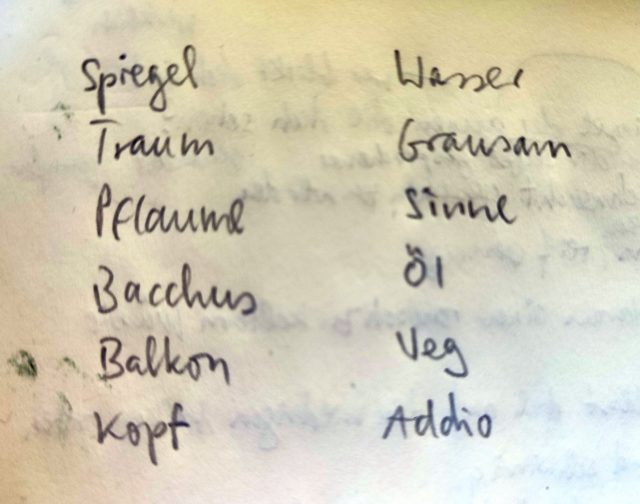 Spiegel Wasser
Traum Grausam
Pflaume Sinne
Bacchus Öl
Balkon Veg
Kopf Addio